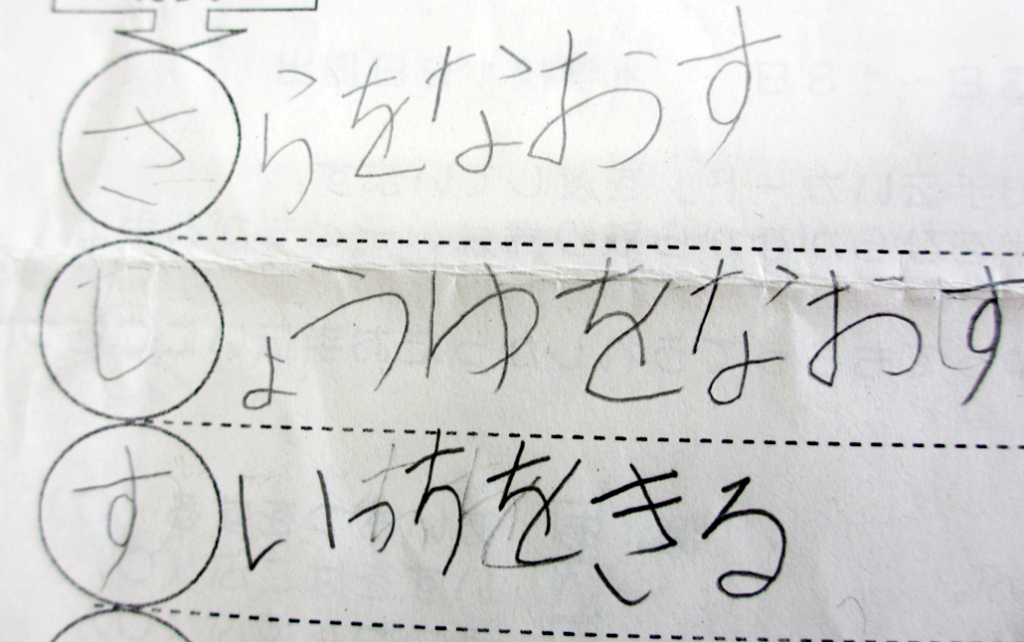 さらをなおす
しょうゆをなおす
すいっちをきる